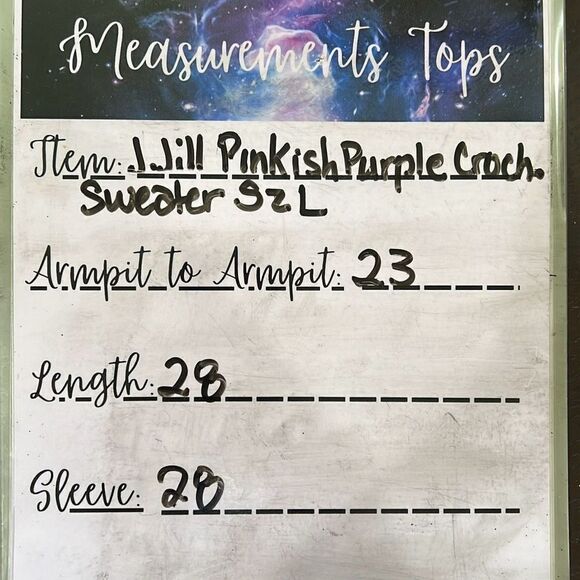 Measurements Tops
Item: J.Jill Pinkish Purple Croch.
Sweater Sz L
Armpit to Armpit: 23
Length: 28
Sleeve: 28